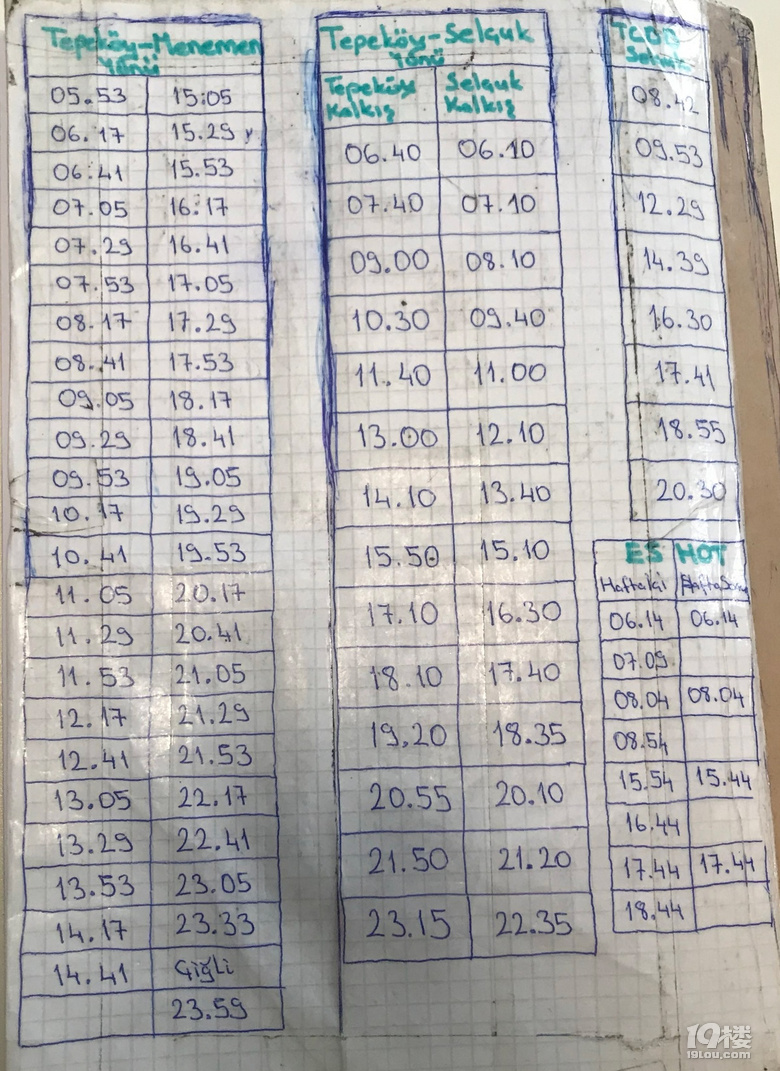 Tepeköy-Menemen
Yönü
05.53 15:05
06.17 15.29
06.41 15.53
07.05 16.17
07.29 16.41
07.53 17.05
08.17 17.29
08.41 17.53
09.05 18.17
09.29 18.41
09.53 19.05
10.17 19.29
10.41 19.53
11.05 20.17
11.29 20.41
11.53 21.05
12.17 21.29
12.41 21.53
13.05 22.17
13.29 22.41
13.53 23.05
14.17 23.33
14.41 Çiğli
23.59
Tepeköy-Selçuk
Yönü
Tepeköy Selçuk
Kalkış Kalkış
06.40 06.10
07.40 07.10
09.00 08.10
10.30 09.40
11.40 11.00
13.00 12.10
14.10 13.40
15.50 15.10
17.10 16.30
18.10 17.40
19.20 18.35
20.55 20.10
21.50 21.20
23.15 22.35
TCDD
08.42
09.53
12.29
14.39
16.30
17.41
18.55
20.30
ES HOT
Haftaiçi
06.14 06.14
07.09
08.04 08.04
08.54
15.54 15.44
16.44
17.44 17.44
18.44
19楼
19lou.com